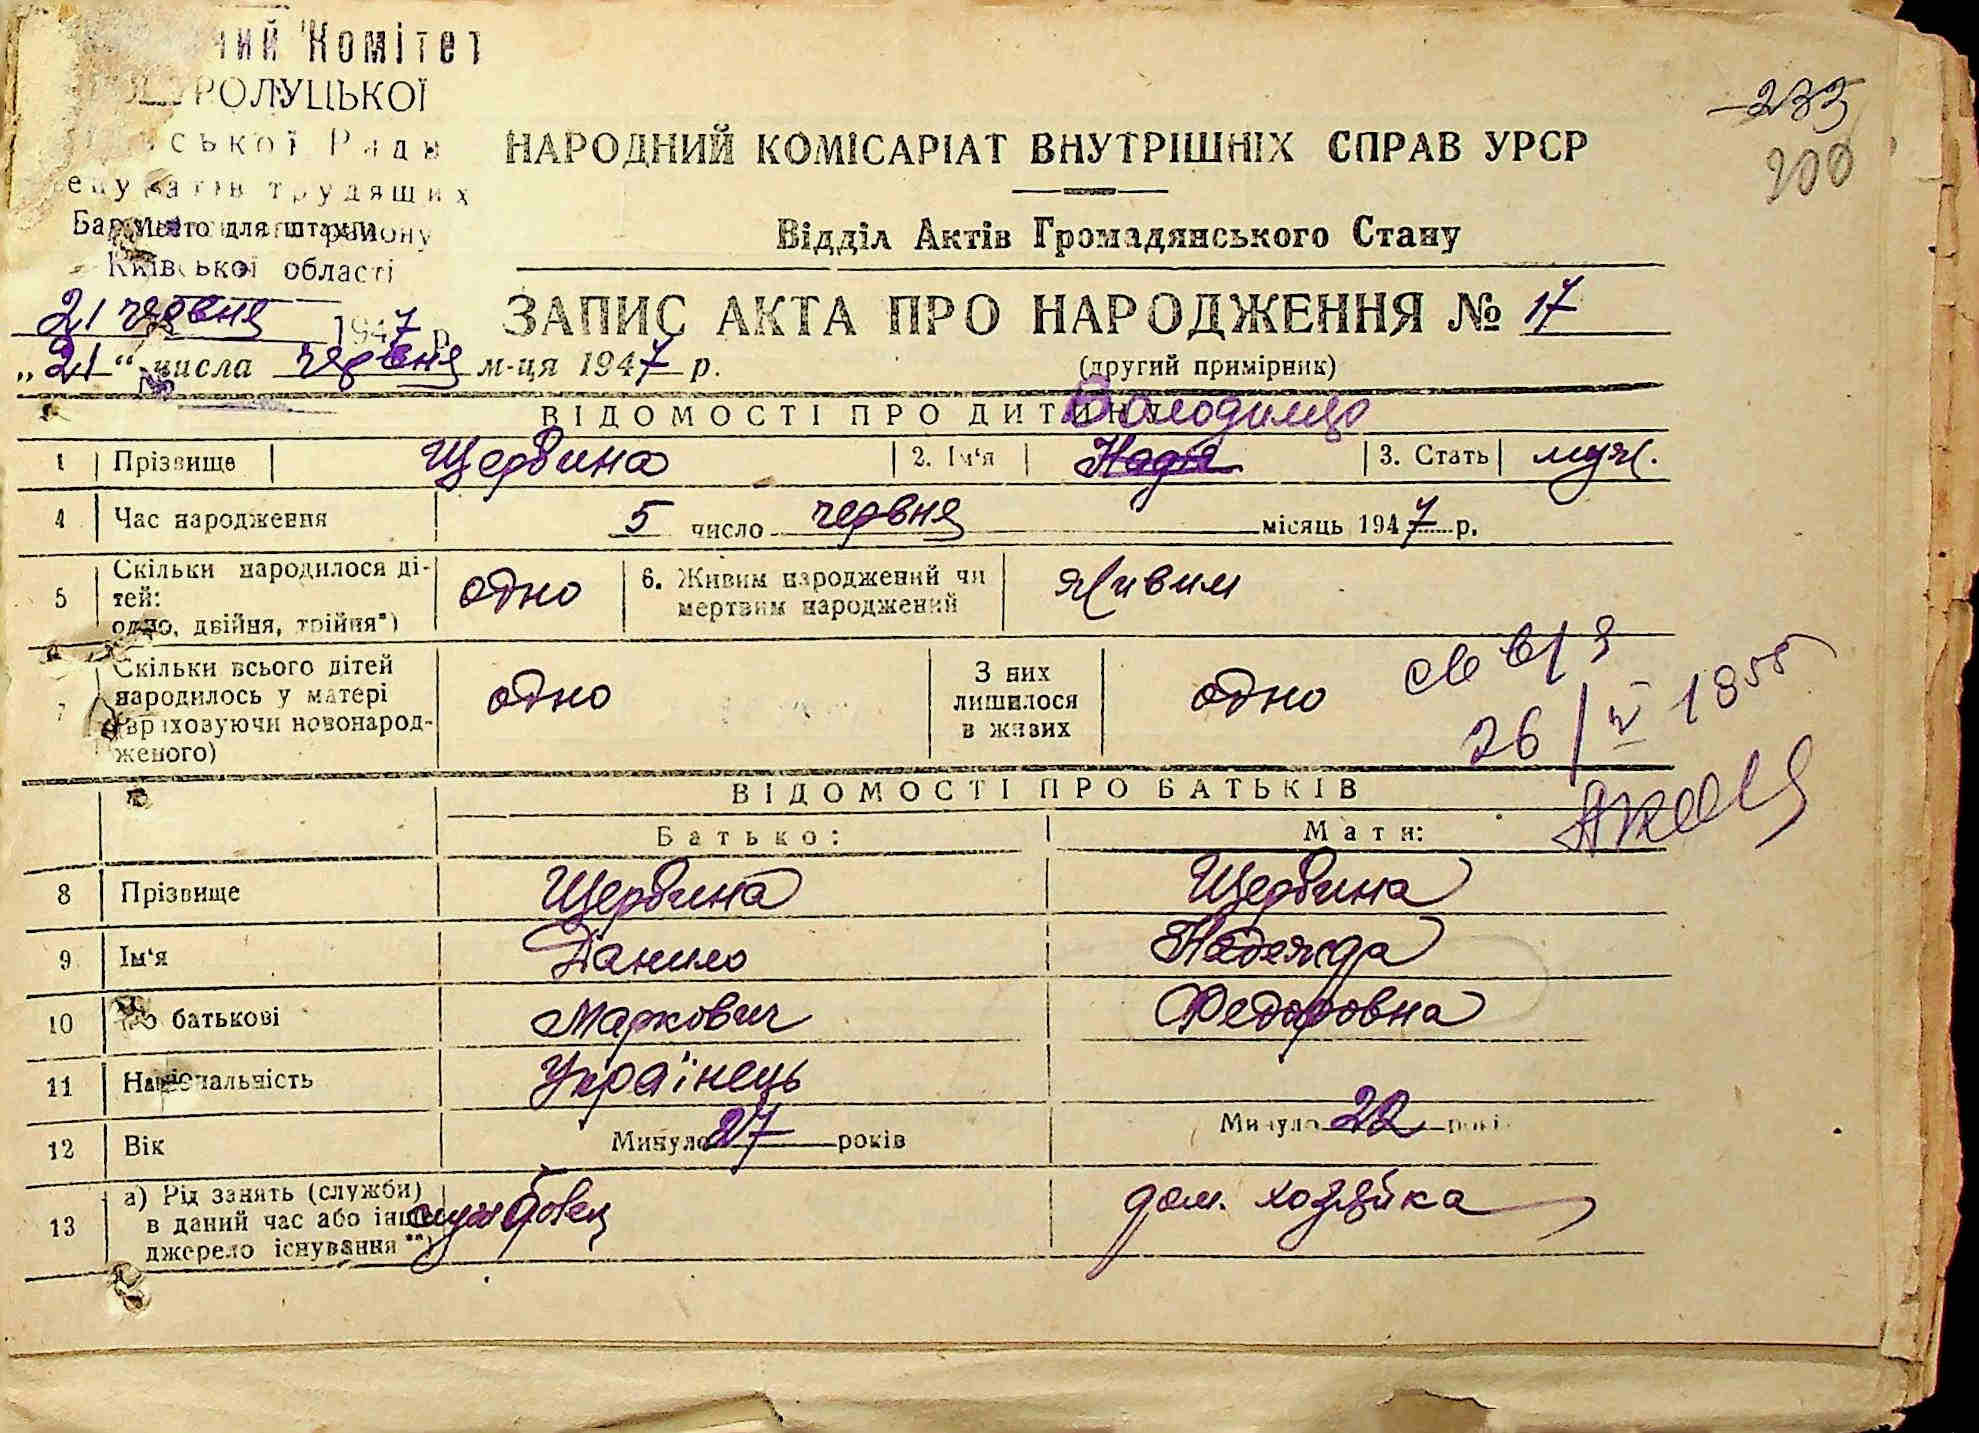 ний Комітет
РОЛУЦЬКОЇ
ської Ради
депутатів трудящих
Місце для штампу району
Київської області
21 червня 1947 р.
„21“ числа червня м-ця 1947 р.
233
200
НАРОДНИЙ КОМІСАРІАТ ВНУТРІШНІХ СПРАВ УРСР
Відділ Актів Громадянського Стану
ЗАПИС АКТА ПРО НАРОДЖЕННЯ № 17
(другий примірник)
ВІДОМОСТІ ПРО ДИТИНУ
Володимир
1 Прізвище Щербина 2. Ім‘я Надія 3. Стать муж.
4 Час народження 5 число червня місяць 1947 р.
5 Скільки народилося ді-
тей:
одно, двійня, трійня*) одно 6. Живим народжений чи
мертвим народжений живим
7 Скільки всього дітей
народилось у матері
(враховуючи новонарод-
женого) одно З них
лишилося
в живих одно
26/V 1955
ВІДОМОСТІ ПРО БАТЬКІВ
Батько: Мати:
8 Прізвище Щербина Щербина
9 Ім‘я Данило Надежда
10 По батькові Маркович Федоровна
11 Національність Українець
12 Вік Минуло 27 років Минуло 22 років
13 а) Рід занять (служби)
в даний час або інше
джерело існування **) службовец дом. хозяйка